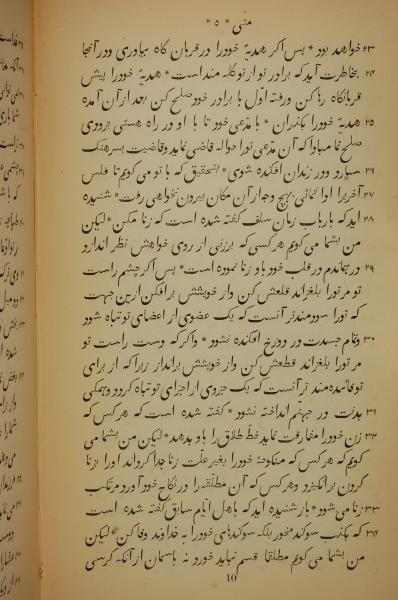 متی * ۵ *
۲۳ خواهد بود * پس اکر هدیهٔ خودرا در قربان کاه بیاوری ودر آنجا
۲۴ بخاطرت آید که برادر تو از تو کله مند است * هدیهٔ خودرا پیش
قربانکاه رها کن ورفته اوّل با برادر خود صلح کن بعد از آن آمده
۲۵ هدیهٔ خودرا بکذران * با مدّعی خود تا با او در راه هستی بزودی
صلح نما مبادا که آن مدّعی تورا حواله قاضی نماید وقاضیت بسرهنک
۲۶ سپارد ودر زندان افکنده شوی * بتحقیق که با تو می کویم تا فلس
۲۷ آخررا ادا ننمائی بهیچ وجه از آن مکان بیرون نخواهی رفت * شنیده
۲۸ اید که بارباب زمان سلف کفته شده است که زنا مکن * لیکن
من بشما می کویم هر کسی که بر زنی از روی خواهش نظر اندازد
۲۹ در هماندم در قلب خود باو زنا نموده است * پس اکر چشم راست
تو مر تورا بلغزاند قلعش کن واز خویشتن بر افکن از این جهت
که تورا سودمندتر آنست که یک عضوی از اعضای تو تباه شود
۳۰ وتمام جسدت در دوزخ افکنده نشود * واکر که دست راست تو
مر تورا بلغزاند قطعش کن واز خویشتن بر انداز زیرا که از برای
تو فائده مند تر آنست که یک جزوی از اجزای تو تباه کردد وهمکی
۳۱ بدنت در جهنم انداخته نشود * کفته شده است که هر کس که
۳۲ زن خودرا مفارقت نماید خط طلاق را باو بدهد * لیکن من بشما می
کویم که هر کس که منکوحهٔ خودرا بغیر علّت زنا جدا کرداند اورا بزنا
کردن بر انکیزد وهر کس که آن مطلّقه را در نکاح خود آورد مرتکب
۳۳ زنا می شود * باز شنیده اید که باهل ایّام سابق کفته شده است
۳۴ که بکذب سوکند مخور بلکه سوکندهای خودرا به خداوند وفا کن * لیکن
من بشما می کویم مطلقا قسم نباید خورد نه باسمان از آنکه کرسی
10